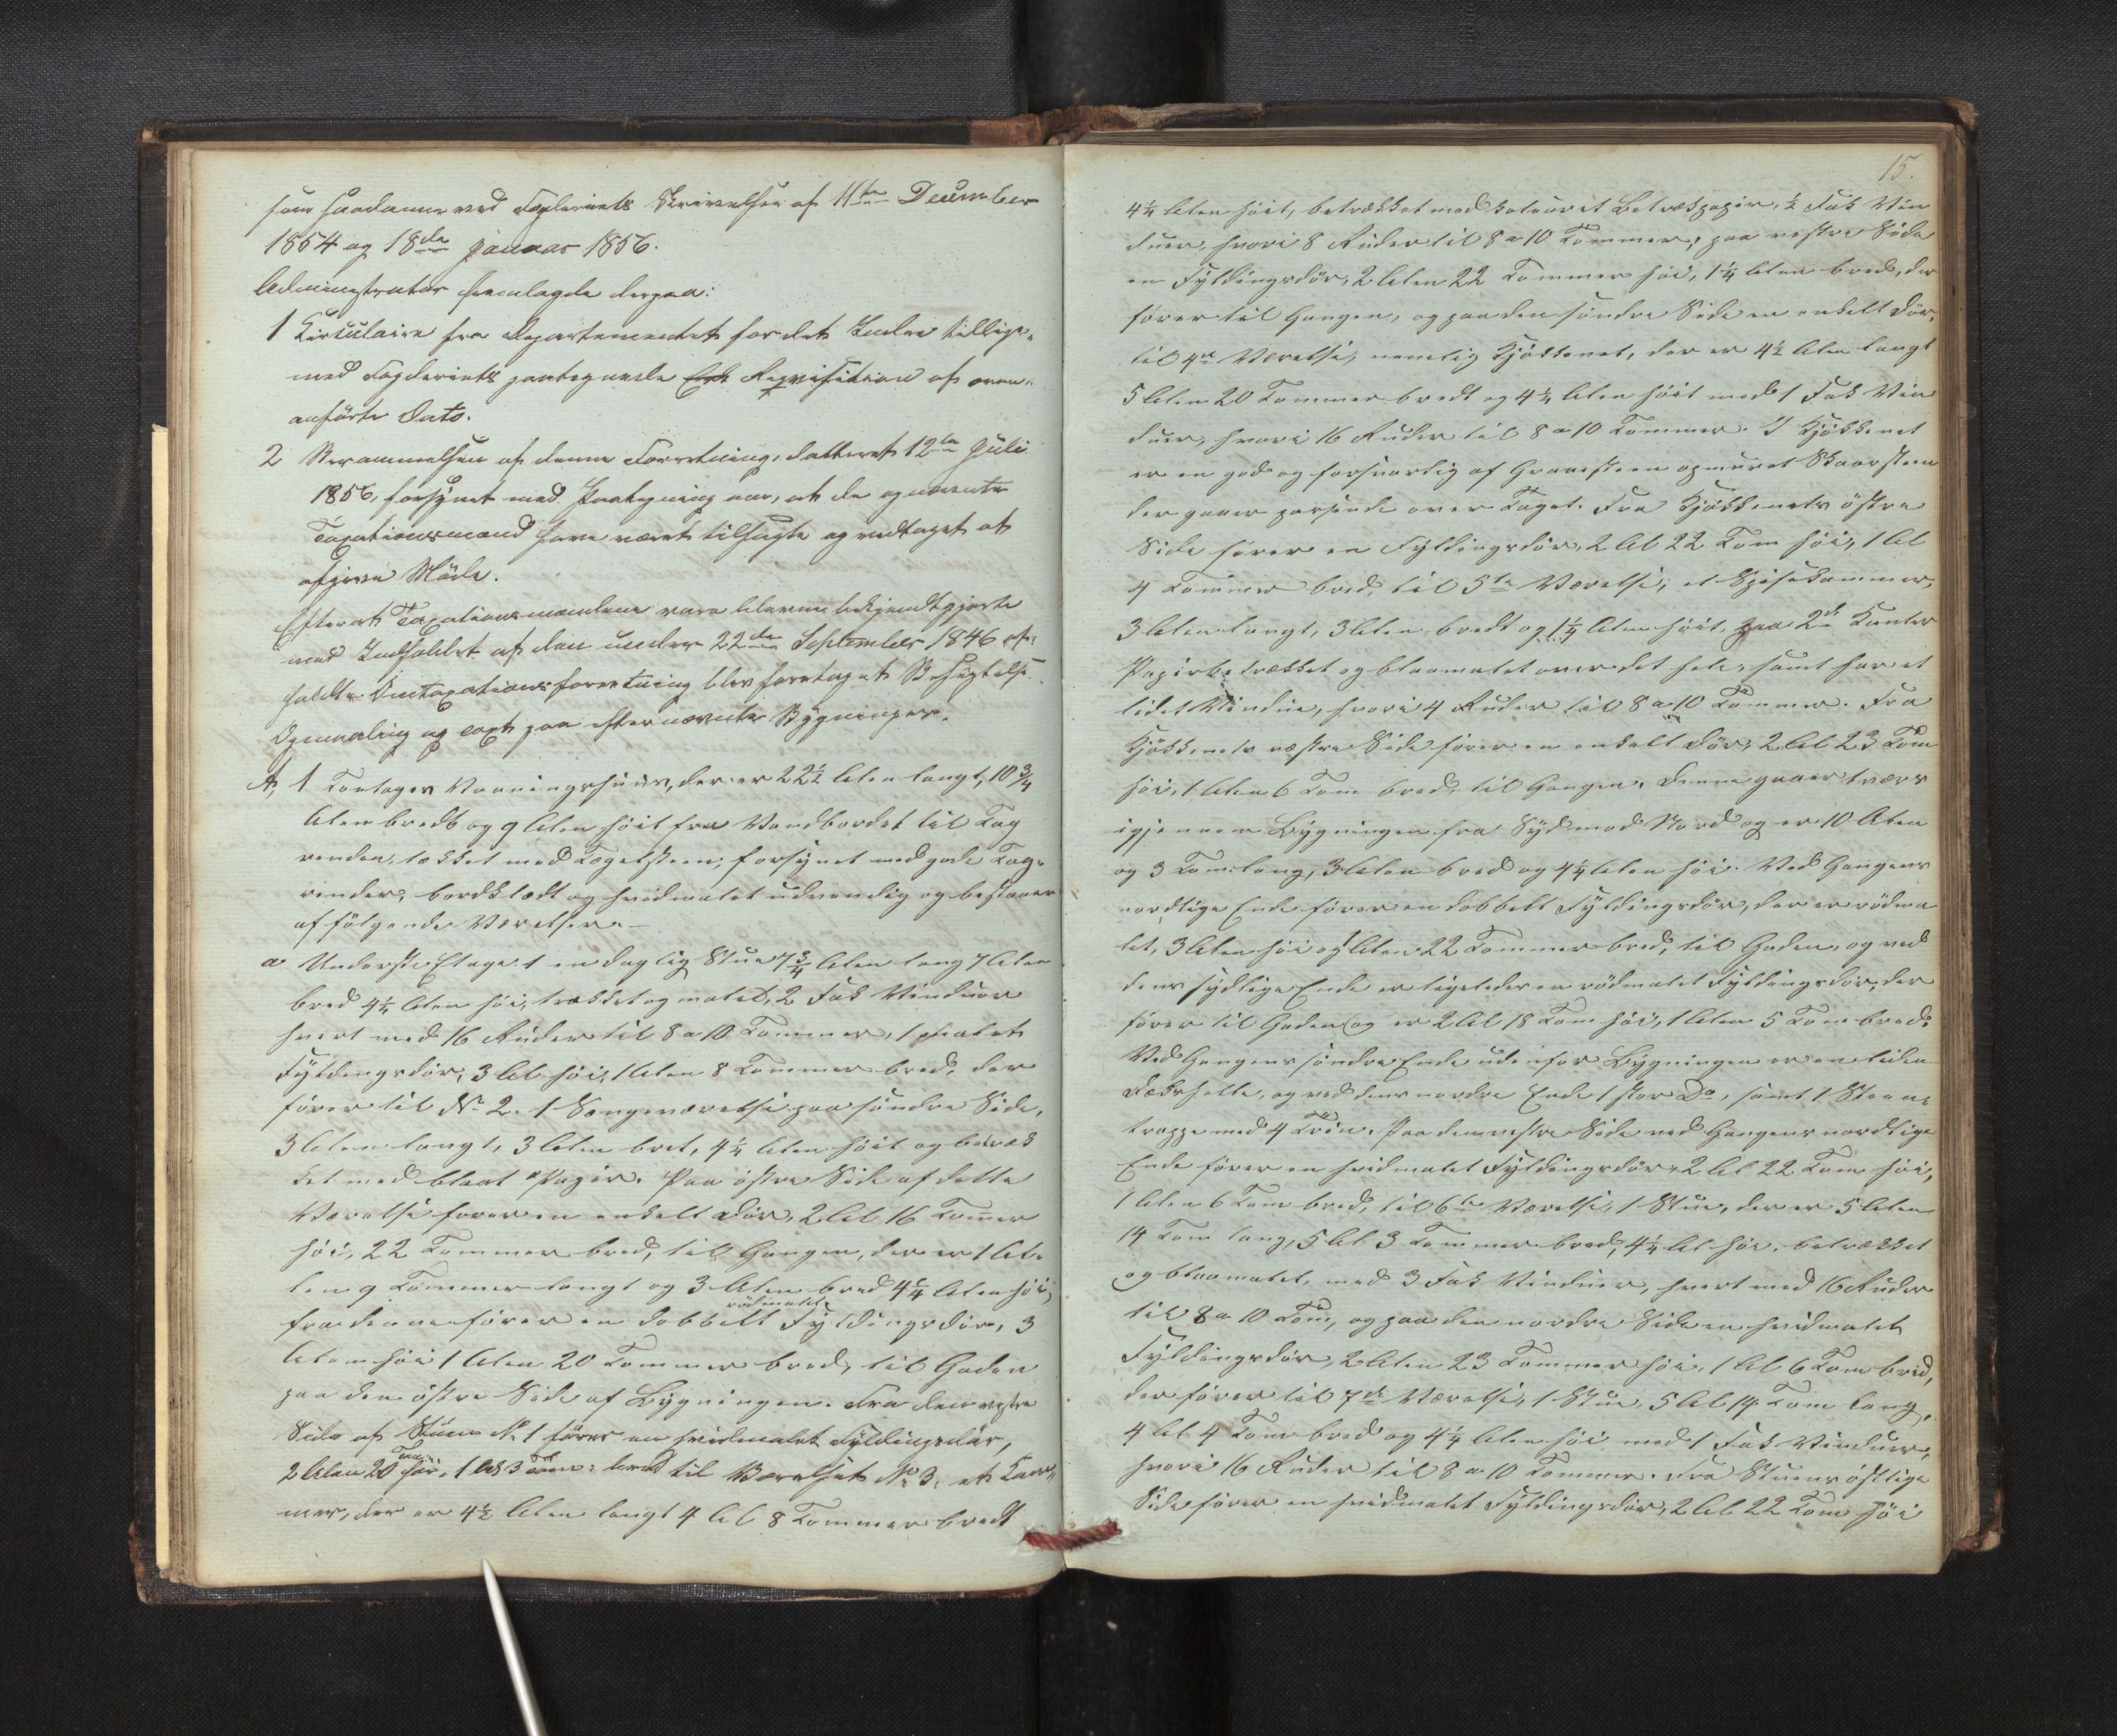 som saadanne ved Fogderiets Skrivelser af 11te December
1854 og 18de Januar 1856.
Administrator fremlagde derpaa:
1 Circulaire fra Departementet for det Indre tillige-
med Fogderiets paategnede Requisition af oven-
anførte Dato.
2 Berammelsen af denne Forretning, datteret 12te Juli
1856, forsynet med Paategning om, at de opnævnte
Taxationsmænd have været tilsagte og vedtaget at
afgive Møde.
Efterat Taxationsmændene vare blevne bekjendtgjorte
med Indholdet af den under 22de September 1846 af-
holdte Omtaxationsforretning blev foretaget Besigtelse
Opmaaling og Taxt paa efternævnte Bygninger.
A, 1 Toetages Vaaningshuus, der er 22½ Alen langt, 10¾
Alen bredt og 9 Alen høit fra Vandbordet til Tag
renden, tækket med Tagelsteen, forsynet med gode Tag-
render, bordklædt og hvidmalet udvendig og bestaaer
af følgende Værelser.-
a Underste Etage: 1 en daglig Stue 7¾ Alen lang 7 Alen
bred 4¼ Alen høi, trækket og malet, 2 Fak Vinduer
hvert med 16 Ruder til 8 a 10 Tommer, 1 malet
Fyldingsdør, 3 Al høi, 1 Alen 8 Tommer bred, der
fører til No 2. 1 Sengeværelse paa søndre Side,
3 Alen langt, 3 Alen bret, 4¼ Alen høit og betræk
ket med blaat Papir. Paa østre Side af dette
Værelse fører en enkelt Dør, 2 Al 16 Tommer
høi, 22 Tommer bred, til Gangen, der er 1 Al-
len 9 Tommer langt og 3 Alen bred 4¼ Alen høi,
rødmalet
fra denne fører en dobbelt Fyldingsdør, 3
Alen høi 1 Alen 20 Tommer bred, til Gaden
paa den østre Side af Bygningen. Fra den vestre
Side af Stuen No 1 fører en hvidmalet Fyldingsdør,
2 Alen 20 Tom høi, 1 Al 3 Tom: bred til Værelset No 3, et Kam-
mer, der er 4½ Alen langt 4 Al 8 Tommer bredt
15.
4¼ Alen høit, betrækket med kouleurt Betrækpapir, ½ Fak Vin
duer, hvori 8 Ruder til 8 a 10 Tommer, paa vestre Side
en Fyldingsdør, 2 Alen 22 Tommer høi, 1¼ Alen bred, der
fører til Gangen, og paa den søndre Side en enkelt Dør,
til 4de Værelse, nemlig Kjøkkenet, der er 4½ Alen langt
5 Alen 20 Tommer bredt og 4¼ Alen høit med 1 Fak Vin
duer, hvori 16 Ruder til 8 a 10 Tommer. I Kjøkkenet
er en god og forsvarlig af Graasteen opmuret Skorsteen
der gaaer passende over Taget. Fra Kjøkkenets østre
Side fører en Fyldingsdør, 2 Al 22 Tom høi, 1 Al
4 Tommer bred, til 5te Værelse, et Spisekammer,
3 Alen langt, 3 Alen bredt og 4¼ Alen høit, paa 2de Kanter
Papirbetrækket og blaamalet over det hele, samt har et
lidet Vindue, hvori 4 Ruder til 8 a 10 Tommer. Fra
Kjøkkenets vestre Side fører en enkelt Dør, 2 Al 23 Tom
høi, 1 Alen 6 Tom bred, til Gangen. Denne gaaer tvers
igjennem Bygningen fra Syd mod Nord og er 10 Alen
og 3 Tom lang, 3 Alen bred og 4¼ Alen høi. Ved Gangens
nordlige Ende fører en dobbelt Fyldingsdør, der er rødma
let, 3 Alen høi og 1 Alen 22 Tommer bred, til Gaden, og ved
dens sydlige Ende er ligeledes en rødmalet Fyldingsdør, der
fører til Gaden og er 2 Al 18 Tom høi, 1 Alen 5 Tom bred.
Ved Gangens søndre Ende udenfor Bygningen er en liden
Dørhelle, og ved dens nordre Ende 1 stor Do, samt 1 Steen-
trappe med 4 Trin. Paa den vestre Side ved Gangens nordlige
Ende fører en hvidmalet Fyldingsdør, 2 Al 22 Tom høi,
1 Alen 6 Tom bred, til 6te Værelse, 1 Stue, der er 5 Alen
14 Tom lang, 5 Al 3 Tommer bred, 4¼ Al høi, betrækket
og blaamalet, med 3 Fak Vinduer, hvert med 16 Ruder
til 8 a 10 Tom, og paa den nordre Side en hvidmalet
Fyldingsdør, 2 Alen 23 Tommer høi, 1 Al 6 Tom bred,
der fører til 7de Værelse, 1 Stue, 5 Al 14 Tom lang,
4 Al 4 Tom bred og 4¼ Alen høi med 1 Fak Vinduer,
hvori 16 Ruder til 8 a 10 Tommer. Fra Stuens østlige
Side fører en hvidmalet Fyldingsdør, 2 Al 22 Tom høi